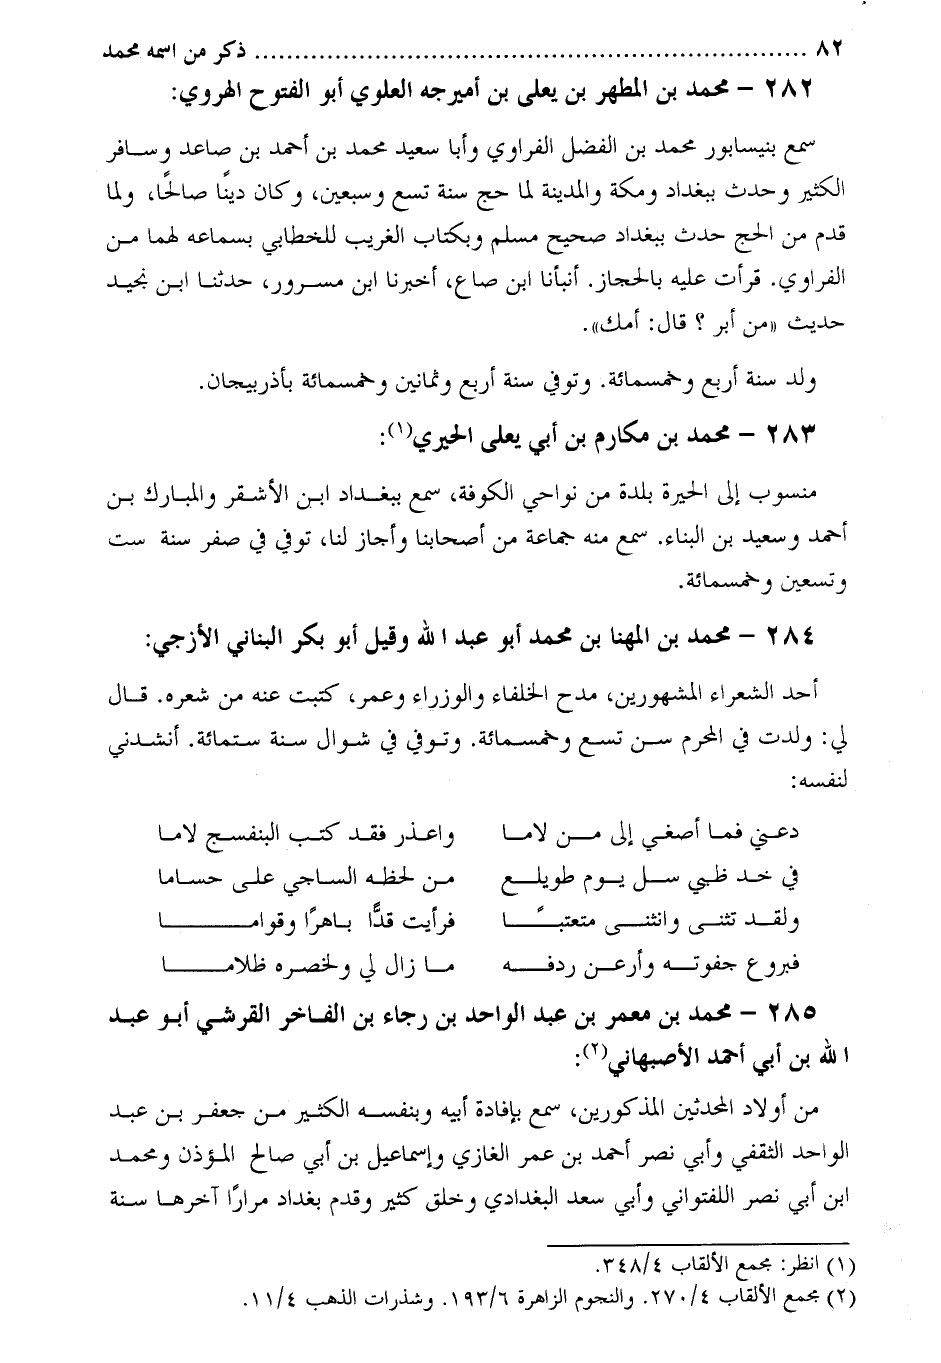 ٨٢ ........................................................................ ذكر من اسمه محمد
٢٨٢ – محمد بن المطهر بن يعلى بن أميرجه العلوي أبو الفتوح الهروي:
سمع بنيسابور محمد بن الفضل الفراوي وأبا سعيد محمد بن أحمد بن صاعد وسافر
الكثير وحدث ببغداد ومكة والمدينة لما حج سنة تسع وسبعين، وكان دينًا صالحًا، ولما
قدم من الحج حدث ببغداد صحيح مسلم وبكتاب الغريب للخطابي بسماعه لهما من
الفراوي. قرأت عليه بالحجاز. أنبأنا ابن صاع، أخبرنا ابن مسرور، حدثنا ابن نجيد
حديث «من أبر ؟ قال: أمك».
ولد سنة أربع وخمسمائة. وتوفي سنة أربع وثمانين وخمسمائة بأذربيجان.
٢٨٣ – محمد بن مكارم بن أبي يعلى الحيري(١):
منسوب إلى الحيرة بلدة من نواحي الكوفة، سمع ببغداد ابن الأشقر والمبارك بن
أحمد وسعيد بن البناء. سمع منه جماعة من أصحابنا وأجاز لنا، توفي في صفر سنة ست
وتسعين وخمسمائة.
٢٨٤ – محمد بن المهنا بن محمد أبو عبد الله وقيل أبو بكر البناني الأزجي:
أحد الشعراء المشهورين، مدح الخلفاء والوزراء وعمر، كتبت عنه من شعره. قال
لي: ولدت في المحرم سن تسع وخمسمائة. وتوفي في شوال سنة ستمائة. أنشدني
لنفسه:
دعني فما أصغي إلى من لاما واعذر فقد كتب البنفسج لاما
في خد ظبي سل يوم طويلع من لحظه الساجي على حساما
ولقد تثنى وانثنى متعتبًا فرأيت قدًّا باهرًا وقواما
فبروع جفوته وأرعن ردفه ما زال لي ولخصره ظلاما
٢٨٥ – محمد بن معمر بن عبد الواحد بن رجاء بن الفاخر القرشي أبو عبد
الله بن أبي أحمد الأصبهاني(٢):
من أولاد المحدثين المذكورين، سمع بإفادة أبيه وبنفسه الكثير من جعفر بن عبد
الواحد الثقفي وأبي نصر أحمد بن عمر الغازي وإسماعيل بن أبي صالح المؤذن ومحمد
ابن أبي نصر اللفتواني وأبي سعد البغدادي وخلق كثير وقدم بغداد مرارًا آخرها سنة
(١) انظر: مجمع الألقاب ٣٤٨/٤.
(٢) مجمع الألقاب ٢٧٠/٤. والنجوم الزاهرة ١٩٣/٦. وشذرات الذهب ١١/٤.